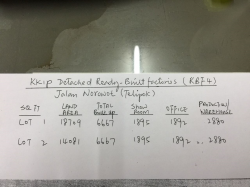 KKIP Detached Ready-Built factories (RBF4)
Jalan Norowot (Telipok)
SQFT LAND AREA TOTAL Built up Show Room OFFICE PRODUCTION/ WAREHOUSE
LOT 1 18709 6667 1895 1892 2880
LOT 2 14081 6667 1895 1892 .. 2880